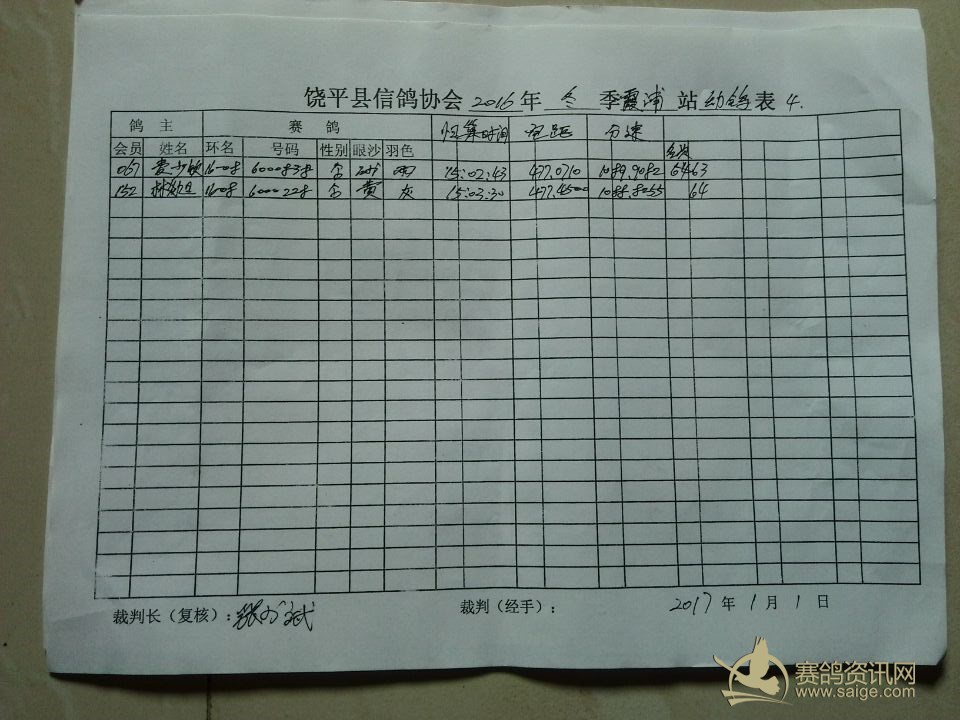 饶平县信鸽协会 2016 年 冬 季 霞浦 站 幼鸽 表 4.
鸽主 赛鸽 归巢时间 空距 分速
会员 姓名 环名 号码 性别 眼沙 羽色 名次
067 16-08 6000838 雨 15:02:43 477.0710 1089.9082 63
152 16-08 6000228 黄 灰 15:03:30 477.4500 1088.8255 64
裁判长（复核）： 裁判（经手）： 2017 年 1 月 1 日
赛鸽资讯网
www.saige.com